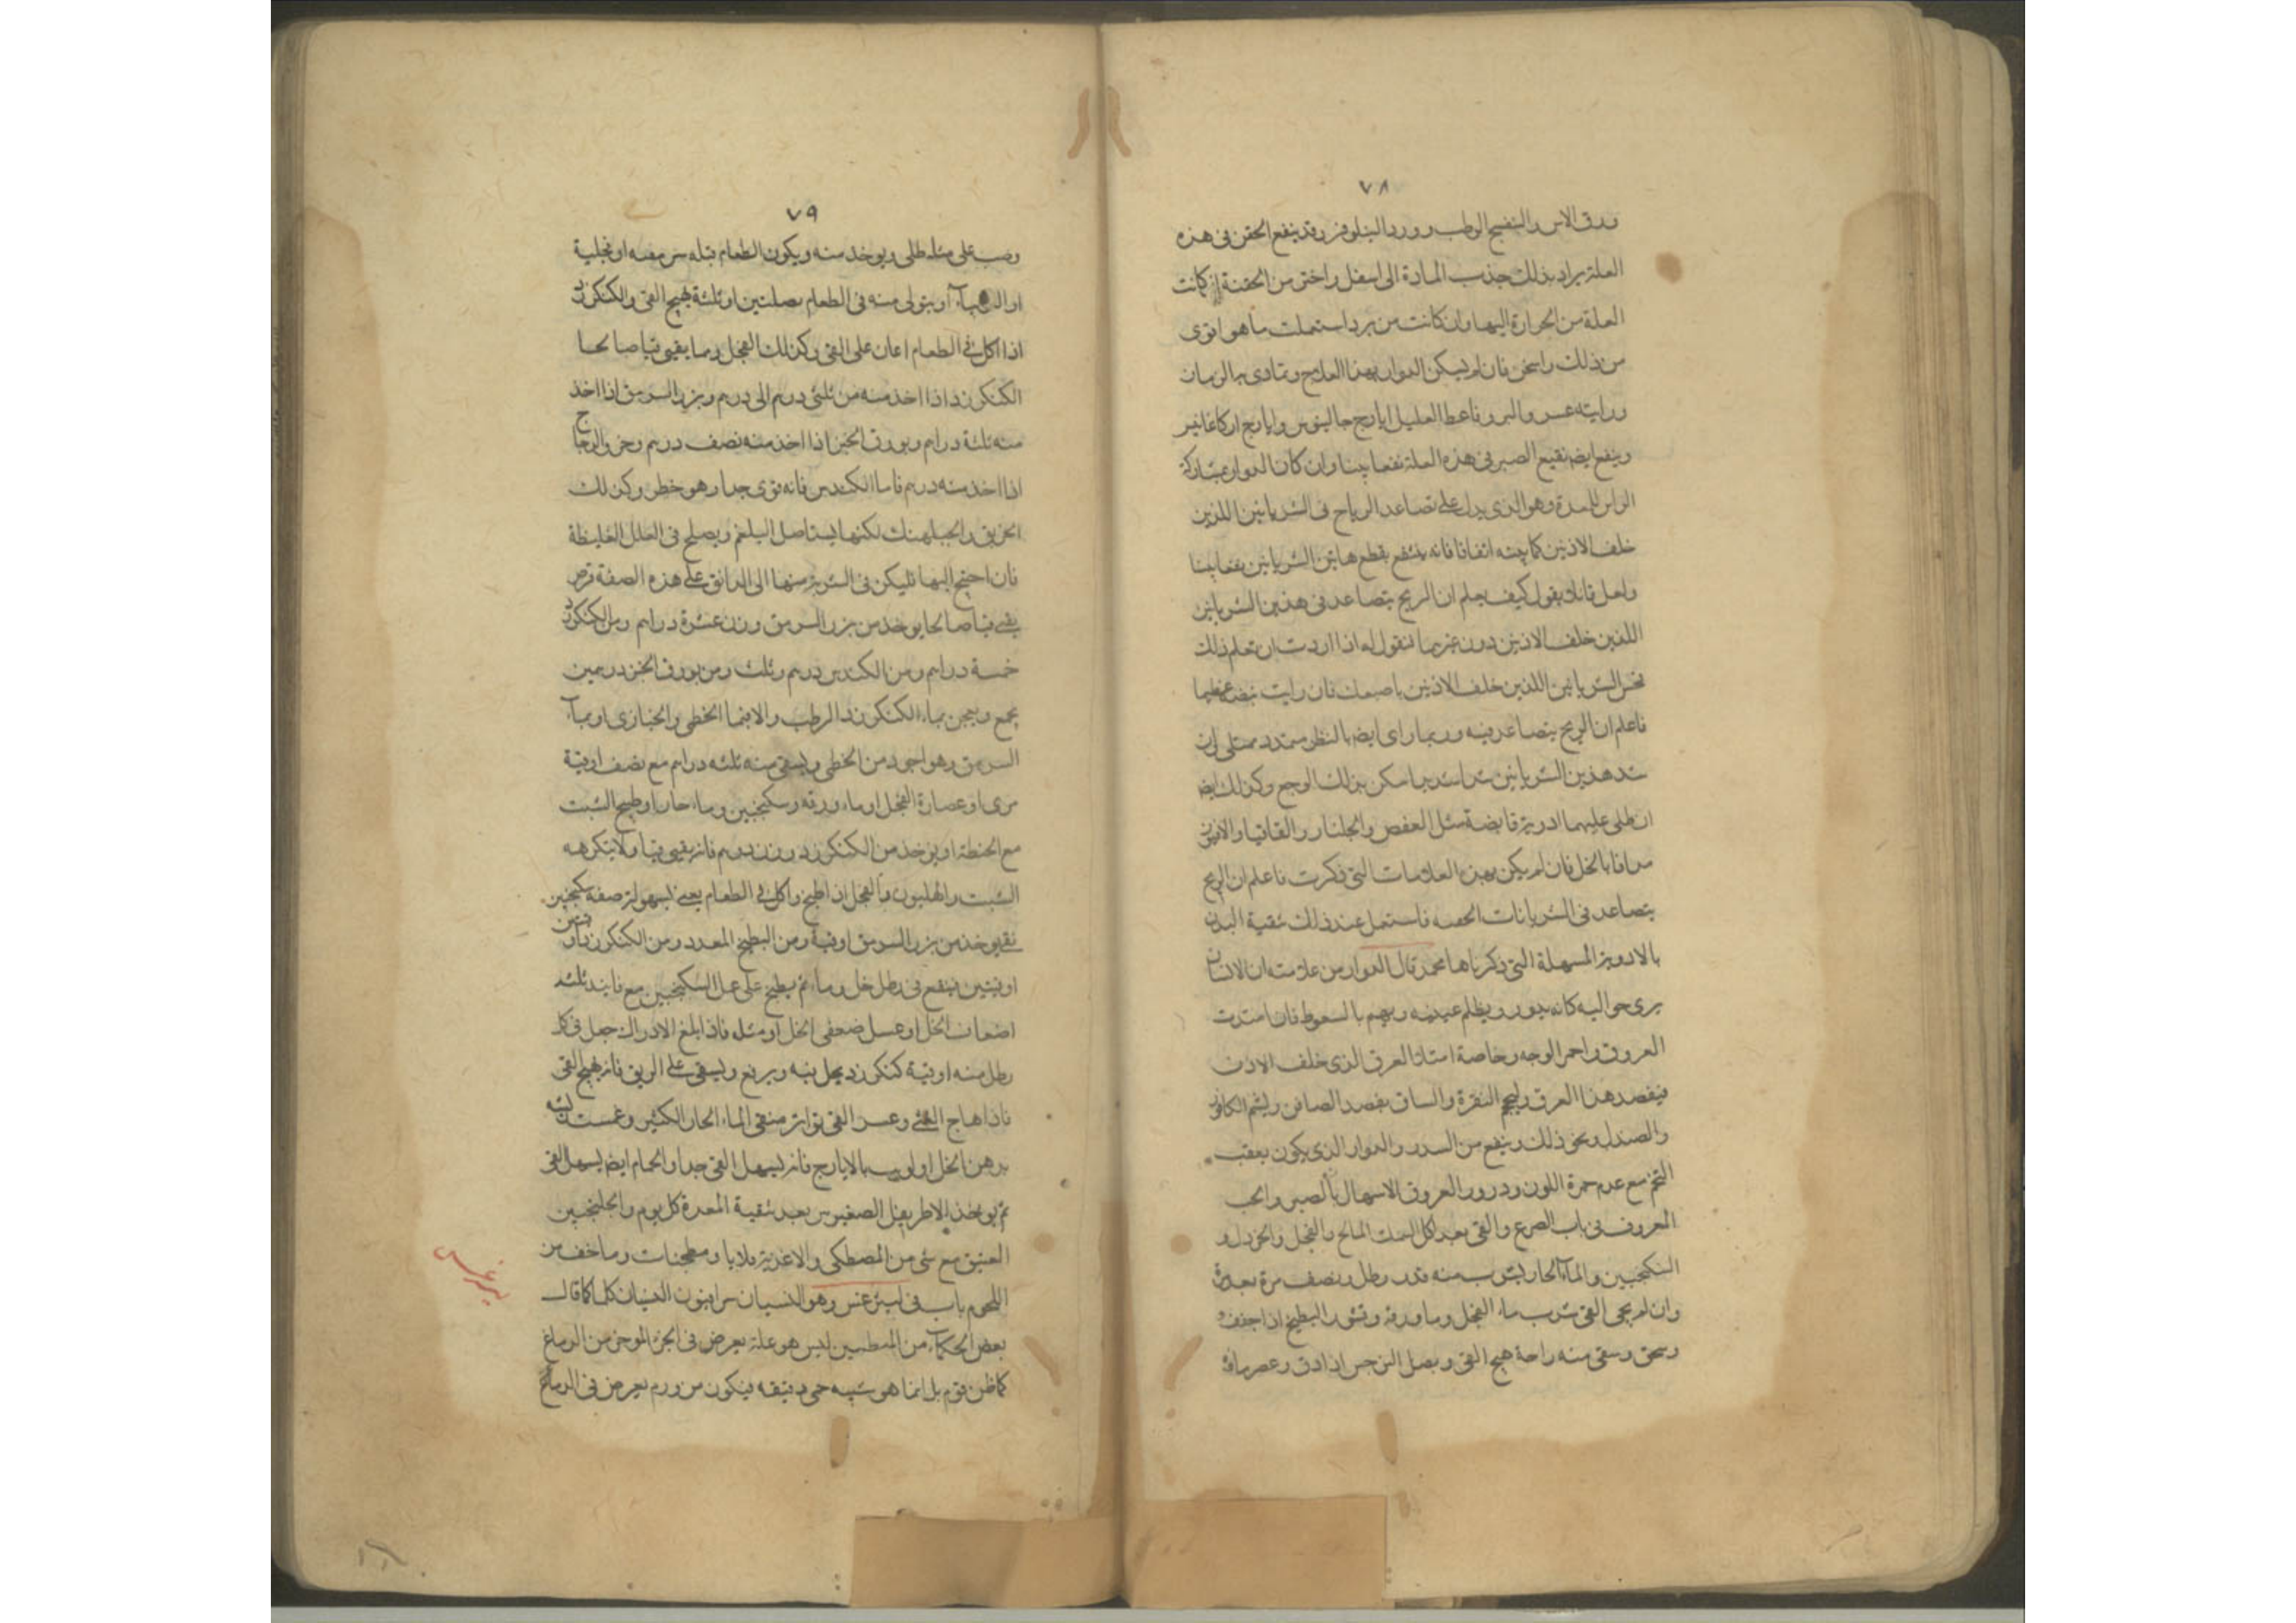 ٧٨
ورق الاس والبنفسج الرطب وورد النيلوفر وقد ينفع الحقن فى هذه
العلة يراد بذلك جذب المادة الى اسفل واختر من الحقنة ان كانت
العلة من الحرارة اليها وان كانت من برد استعملت ما هو اقوى
من ذلك واسخن فان لم يسكن الدوار بهذا العلاج وتمادى به الزمان
ورايته عسر والبرو فاعط العليل ايارج جالينوس وايارج اركاغانيس
وينفع ايضا نقيع الصبر فى هذه العلة نفعا بينا وان كان الدوار بمشاركة
الراس للمعدة وهو الذى يدل على تصاعد الرياح فى الشريانين اللذين
خلف الاذنين كما بينته انفا فانه ينتفع بقطع هاتين الشريانين نفعا بينا
ولعل قائلا يقول كيف يعلم ان الريح يتصاعد فى هذين الشريانين
اللذين خلف الاذنين دون غيرهما فنقول له اذا اردت ان تعلم ذلك
فجس الشريانين اللذين خلف الاذنين باصبعك فان رايت نبضا عظيما
فاعلم ان الريح يتصاعد فيه وربما راى ايضا بالنظر متمدد ممتلى وان
شد هذين الشريانين شدا شديدا سكن بذلك الوجع وكذلك ايضا
ان طلى عليهما ادوية قابضة مثل العفص والجلنار والقاقيا والافيون
مدافا بالخل فان لم يكن بهذه العلامات التى ذكرت فاعلم ان الريح
يتصاعد فى الشريانات فاستعمل عند ذلك تنقية البدن
بالادوية المسهلة التى ذكرناها محمد قال الدوار من علامته ان الانسان
يرى حواليه كانه يدور ويظلم عينيه ويهم بالسقوط فان امتدت
العروق واحمر الوجه وخاصة امتلا العرق الذى خلف الاذن
فيفصد هذا العرق ويحجم النقرة والساق بفصد الصافن ويشم الكافور
والصندل ونحو ذلك وينفع من السدر والدوار الذى يكون بعقب
التخم مع عدم حمرة اللون ودرور العروق الاسهال بالصبر والحب
المعروف فى باب الصرع والقى بعد اكل السمك المالح والفجل والخردل و
السكنجبين والماء الحار يشرب منه قدر رطل ونصف مرة بعد مرة
وان لم يجى القى شرب ماء الفجل وماء ورقه وقشور البطيخ اذا جفف
وسحق وسقى منه راحة هيج القى وبصل النرجس اذا دق وعصر ماؤه
٧٩
وصب على مثله طلى ويوخذ منه ويكون الطعام قبله سرمقية او فجلية
او اللوبياء او يتولى منه فى الطعام بصلتين او ثلثة يهيج القى والكنكرزد
اذا اكل فى الطعام اعان على القى وكذلك الفجل ومما يقيى قيا صالحا
الكنكرزد اذا اخذ منه من ثلثى درهم الى درهم وبزر السرمق اذا اخذ
منه ثلثة دراهم وبورق الخبز اذا اخذ منه نصف درهم وخرو الدجاج
اذا اخذ منه درهم فاما الكندس فانه قوى جدا وهو خطر وكذلك
الخربق والجبلهنك لكنها يستاصل البلغم ويصلح فى العلل الغليظة
فان احتيج اليها فليكن فى الشربة منها الى الدانق على هذه الصفة قرص
يقى قيا صالحا يوخذ من بزر السرمق وزن عشرة دراهم ومن الكنكرزد
خمسة دراهم ومن الكندس درهم وثلث ومن بورق الخبز درهمين
يجمع ويعجن بماء الكنكرزد الرطب والا فبماء الخطمى والخبازى او بماء
السرمق وهو اجود من الخطمى ويسقى منه ثلثه دراهم مع نصف اوقية
مرى او عصارة الفجل او ماء ورقه وسكنجبين وماء حار او طبيخ الشبت
مع الحنطة او يوخذ من الكنكرزد وزن درهم فانه يقيى قيا ولا يتكرهه
الشبت والهليون والفجل اذا طبخ واكل فى الطعام يقى بسهولة صفة سكنجبين
يقى يوخذ من بزر السرمق اوقية ومن البطيخ المعدد ومن الكنكرزد اوقيتين
اوقيتين فينقع فى رطل خل وماء ثم يطبخ على عمل السكنجبين مع فانيذ ثلثه
اضعاف الخل او عسل ضعفى الخل او مثله فاذا بلغ الادراك جعل فى كل
رطل منه اوقية كنكرزد يحل فيه ويرفع ويسقى على الريق فانه يهيج القى
فاذا هاج القى وعسر القى تواتر منقى الماء الحار الكثير وغمست ريشه
بدهن الخل او لوث بالايارج فانه يسهل القى جدا والحمام ايضا يسهل القى
ثم يوخذ الاطريفل الصغير من بعد تنقية المعدة كل يوم والجلنجبين
العتيق مع شى من المصطكى والاغذية قلايا ومطجنات وما خف من
اللحوم باب فى ليثرغس وهو النسيان سرابيون النسيان كلما كما قال
بعض الحكماء من المتطببين ليس هو علة يعرض فى الجزء الموخر من الدماغ
كما ظن قوم بل انما هو شبيه حمى دقيقه فيكون من ورم يعرض فى الدماغ
ليثرغس